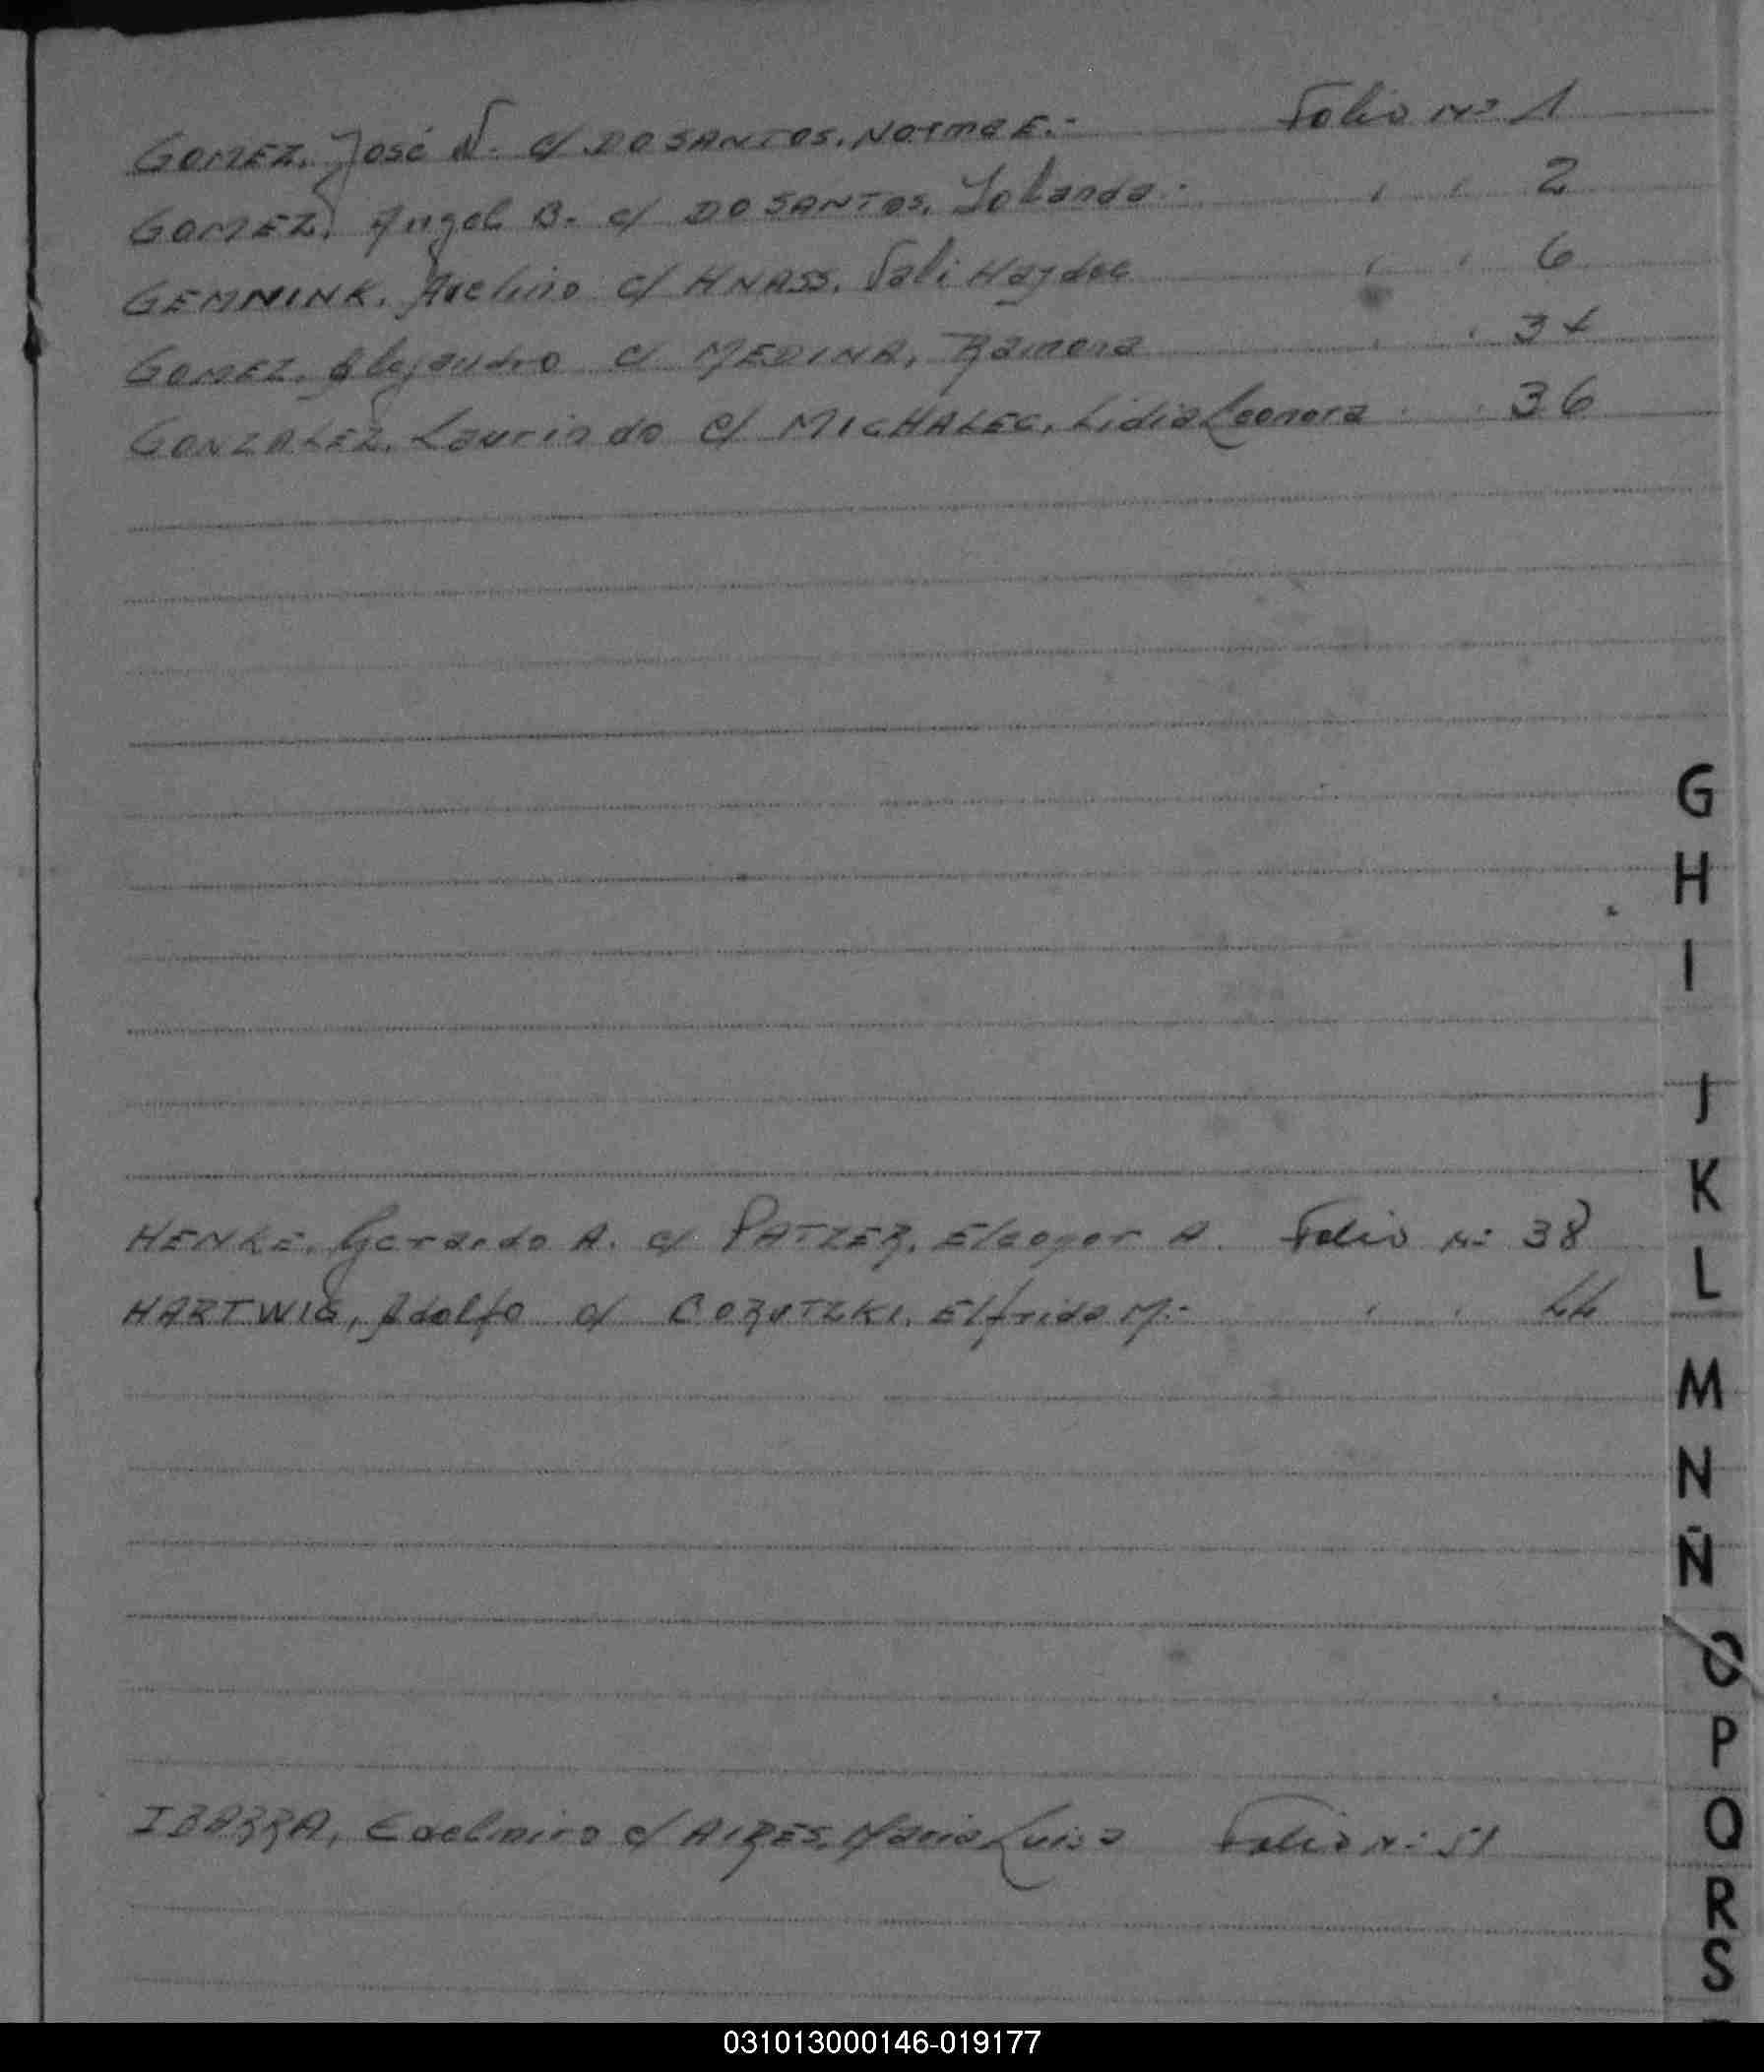 GOMEZ, José N. c/ DO SANTOS, Norma E.- Folio Nº 1
GOMEZ, Angel B. c/ DO SANTOS, Yolanda.- " " 2
GEMNINK, Avelino c/ HNASS, Vali Haydee " " 6
GOMEZ, Alejandro c/ MEDINA, Ramona " " 34
GONZALEZ, Laurindo c/ MICHALEC, Lidia Leonora " " 36
HENKE, Gerardo A. c/ PATZER, Eleonor A. Folio Nº 38
HARTWIG, Adolfo c/ COZUTZKI, Elfrida M.- " " 44
IBARRA, Edelmiro c/ AIRES, Maria Luisa Folio Nº 51
G
H
I
J
K
L
M
N
Ñ
O
P
Q
R
S
031013000146-019177